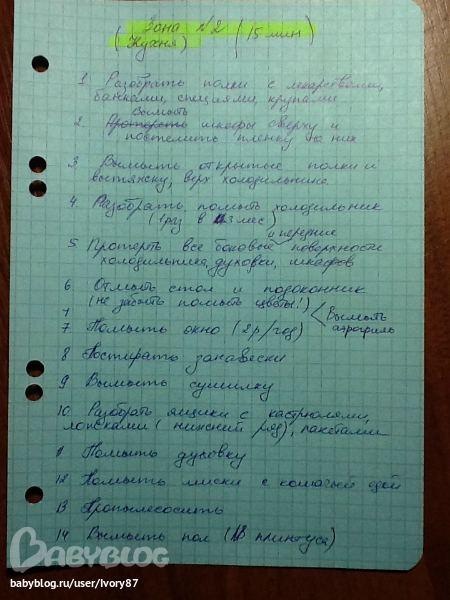 Зона №2 (15 мин)
(Кухня)
1 Разобрать полки с лекарствами,
банками, специями, крупами
Вымыть
2. Протереть шкафы сверху и
постелить пленку на них
3 Вымыть открытые полки и
вытяжку, верх холодильника
4. Разобрать, помыть холодильник
(1 раз в 3 мес)
и передние
5. Протереть все боковые поверхности
холодильника, духовки, шкафов
6 Отмыть стол и подоконник
(не забыть помыть цветы!)
Вымыть
7. Помыть окно (2р/год)
8 Постирать занавески
9 Вымыть сушилку
10. Разобрать ящики с кастрюлями,
(нижний ряд), пакетами
11 Помыть духовку
12 Помыть миски с едой
13 Пропылесосить
14 Вымыть пол (плинтуса)
BABYBLOG
babyblog.ru/user/Ivory87